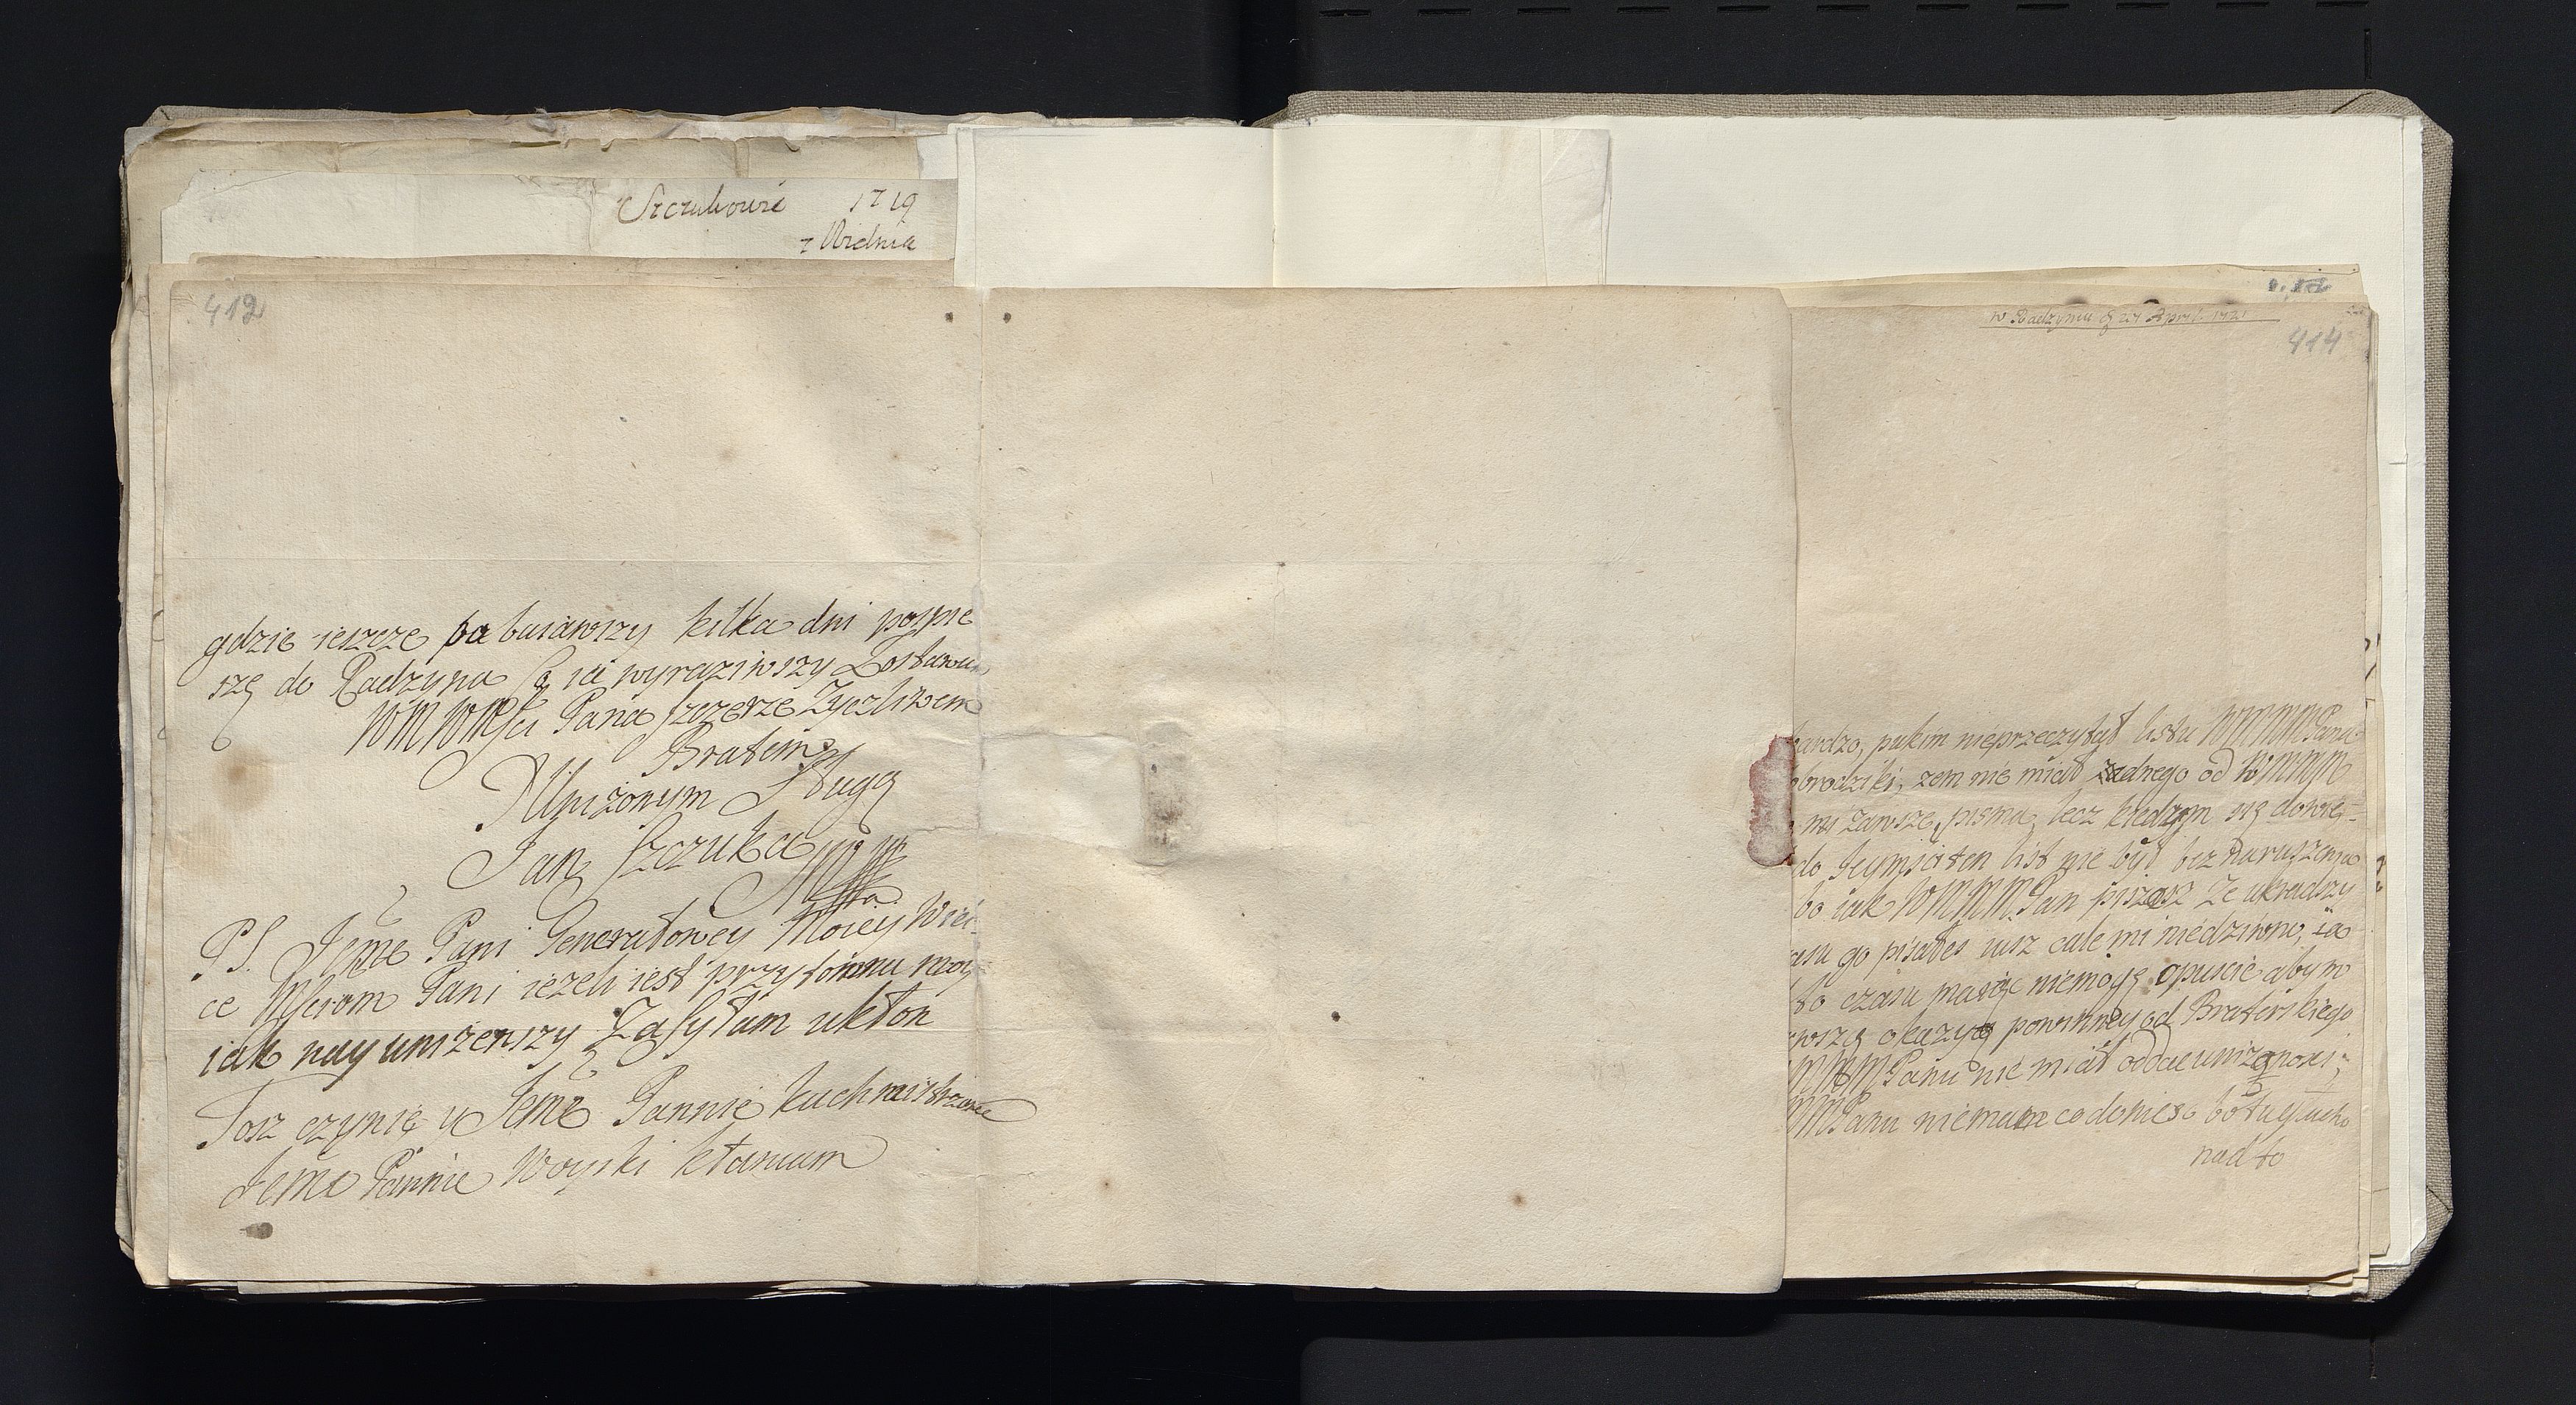 Szczukowie 1719
z Wiednia
412
gdzie ieszcze pobawiwszy kilka dni pospie
szę do Radzyna Co ia wyraziwszy Zostawam
WM WMsci Pana szczerze Zyczliwem
Bratem y
Uniżonym Sługą
Jan Szczuka
PS. Jeme Pani Generałowey Moiey Wiel-
ce Msciom Pani ieżeli iest przytomna moy
iak nayuniżenszy Zasyłam ukłon
Tosz czynię y Jeme Pannie kuchmistrzance
Jeme Pannie Woyski kłaniam
w Radzyniu 27 April 1721
414
bardzo, pokim nieprzeczytał listu WMMM Pana
obrodziki, zem nie miał żadnego od WMMM
mi Zawsze pisma, lecz kiedym się dowie-
do Jeymsci ten list nie był bez naruszenia
bo iak WMMM Pan piszesz Ze ukradszy
asu go pisałes iusz cale mi niedziwno, ia
to czasu maiąc niemogę opuscic abym
wszą okazyą powinney od Braterskiego
WMMM Panu nie miał oddac unizonosci,
MM Panu niemam co doniesc bo tu głucho
nad to